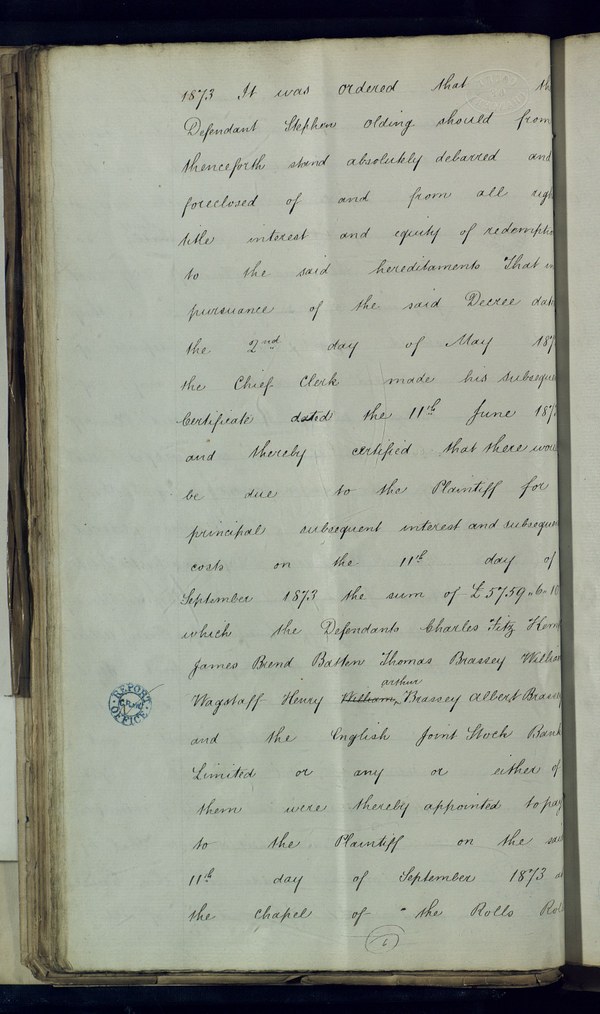 1873 It was ordered that th
Defendant Stephen Olding should from
thenceforth stand absolutely debarred and
foreclosed of and from all righ
title interest and equity of redemptio
to the said hereditaments That in
pursuance of the said Decree date
the 2nd day of May 187
the Chief Clerk made his subseque
Certificate dated the 11th June 187
and thereby certified that there woul
be due to the Plaintiff for
principal subsequent interest and subseque
costs on the 11th day of
September 1873 the sum of £5759 " 6 " 10
which the Defendants Charles Fitz Kem
James Brend Batten Thomas Brassey William
arthur
Wagstaff Henry William Brassey Albert Brassey
and the English Joint Stock Bank
Limited or any or either of
them were thereby appointed to pay
to the Plaintiff on the said
11th day of September 1873 a
the Chapel of the Rolls Rol
6
REPORT
OFFICE